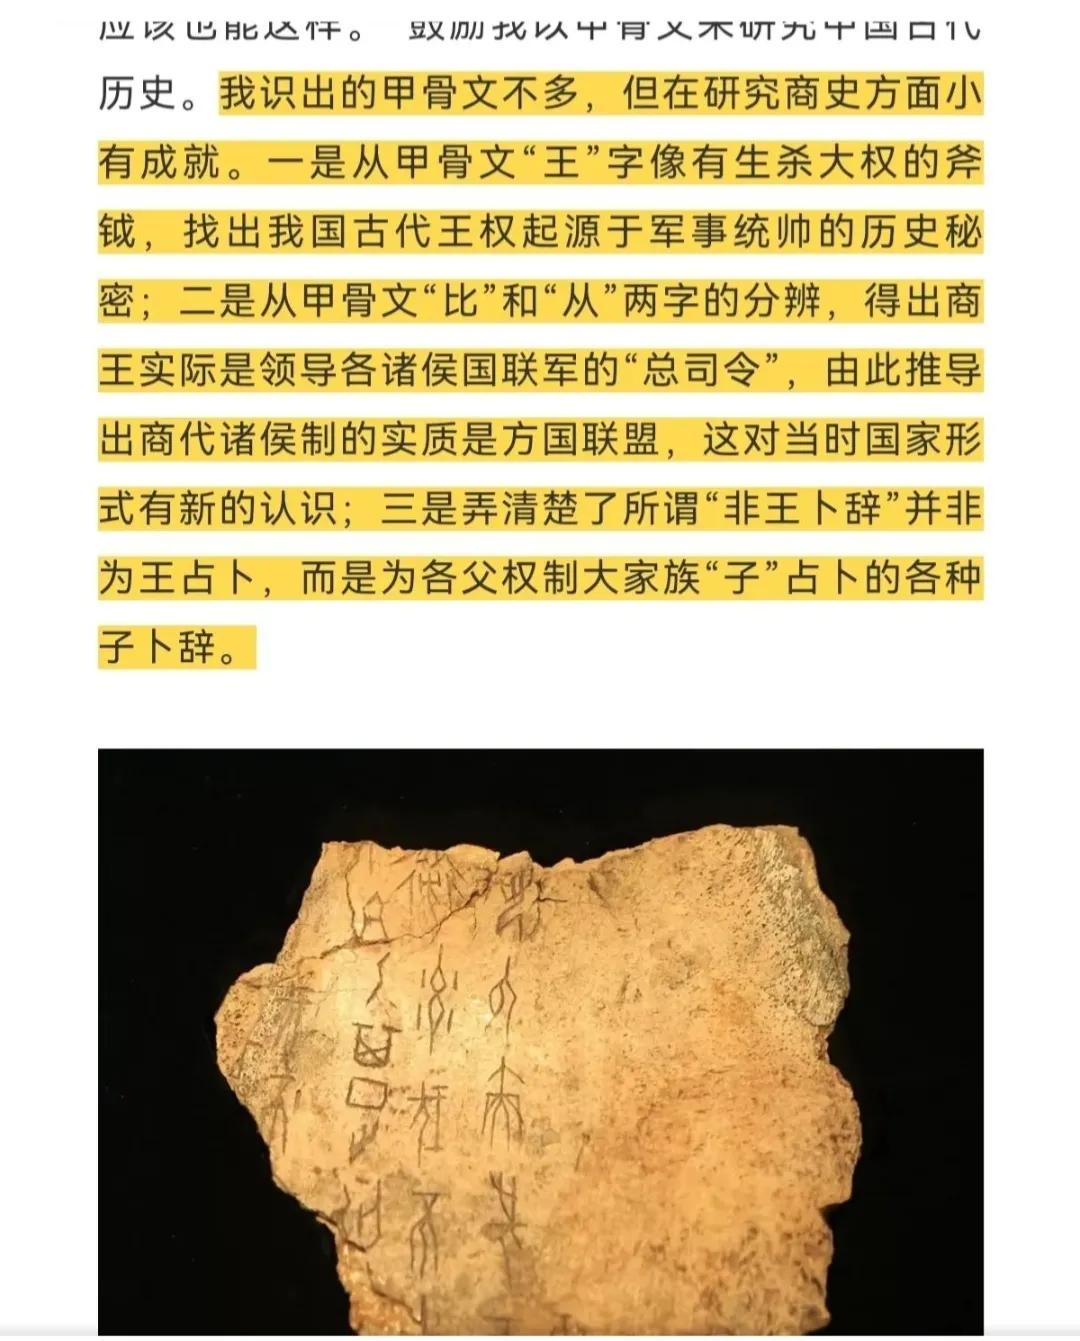 应该也能这样。”鼓励我以甲骨文来研究中国古代
历史。我识出的甲骨文不多，但在研究商史方面小
有成就。一是从甲骨文“王”字像有生杀大权的斧
钺，找出我国古代王权起源于军事统帅的历史秘
密；二是从甲骨文“比”和“从”两字的分辨，得出商
王实际是领导各诸侯国联军的“总司令”，由此推导
出商代诸侯制的实质是方国联盟，这对当时国家形
式有新的认识；三是弄清楚了所谓“非王卜辞”并非
为王占卜，而是为各父权制大家族“子”占卜的各种
子卜辞。